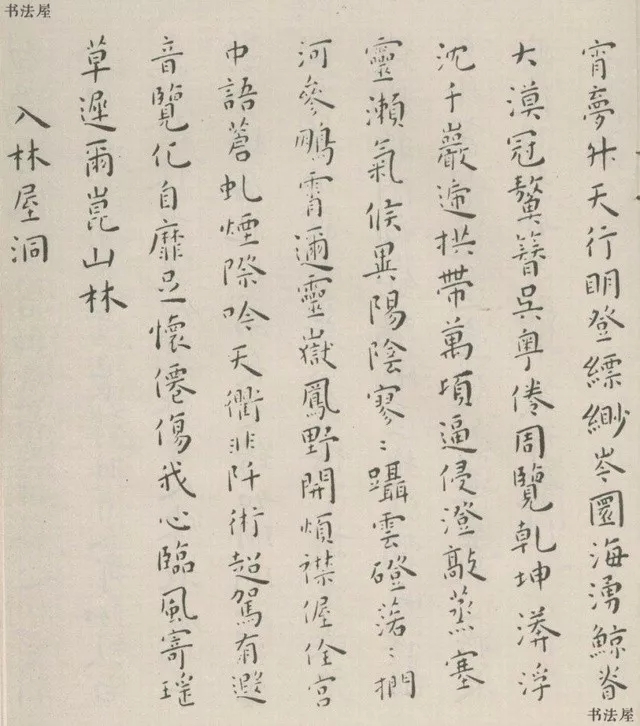 书法屋
宵夢升天行明登縹緲岑圜海湧鯨脊
大漠冠鼇簪吳粵倦周覽乾坤漭浮
沈千巖遞拱帶萬頃逼侵澄歊蒸塞
靈瀨氣候異陽陰寥〻躡雲磴落〻捫
河參鵬霄邇靈嶽鳳野開煩襟偓佺宮
中語蒼虬煙際吟天衢非阡術超駕有遐
音覽化自靡足懷僊傷我心臨風寄瑤
草遲爾崑山林
入林屋洞
书法屋